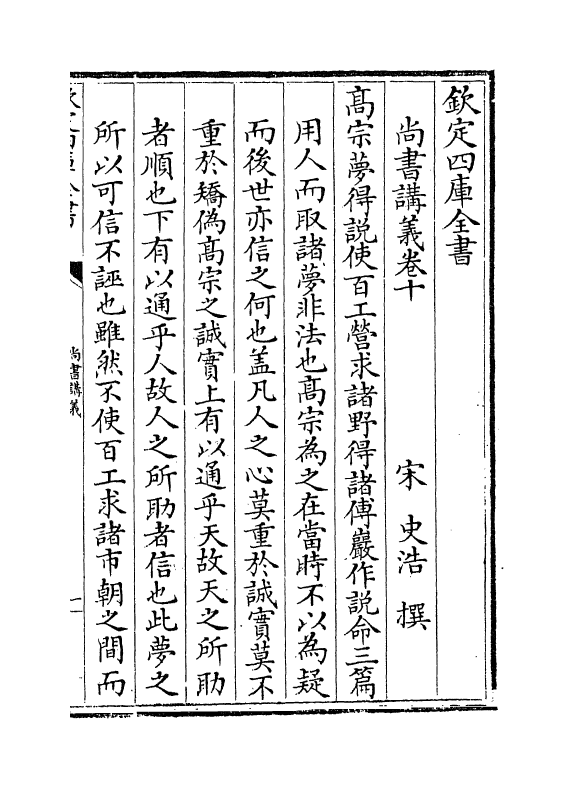 欽定四庫全書
尚書講義卷十
宋 史浩 撰
髙宗夢得説使百工營求諸野得諸傅巖作説命三篇
用人而取諸夢非法也髙宗為之在當時不以為疑
而後世亦信之何也蓋凡人之心莫重於誠實莫不
重於矯偽髙宗之誠實上有以通乎天故天之所助
者順也下有以通乎人故人之所助者信也此夢之
所以可信不誣也雖然不使百工求諸市朝之間而
欽定四庫全書
尚書講義
一